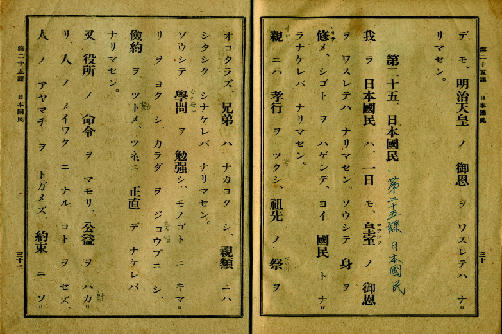 第二十五課 日本國民
三十
デモ、明治天皇ノ御恩ヲワスレテハナ
リマセン。
第二十五、日本國民
第二十五課 日本國民
我ラ日本國民ハ、一日モ、皇室ノ御恩
ヲワスレテハナリマセン。ソウシテ身ヲ
修メ、シゴトヲハゲンデ、ヨイ國民トナ
ラナケレバナリマセン。
親ニハ孝行ヲツクシ、祖先ノ祭ヲ
オコタラズ、兄弟ハナカヨクシ、親類ニハ
シタシクシナケレバナリマセン。
ソウシテ學問ヲ勉強シ、モノゴトニキマ
リヲヨクシ、カラダヲジョウブニシ、
儉約ヲツトメ、ツネニ正直デナケレバ
ナリマセン。
又役所ノ命令ヲマモリ、公益ヲハカ
リ、人ノメイワクニナルコトヲセズ、
人ノアヤマチヲトガメズ、約束ニソ
第二十五課 日本國民
三十一